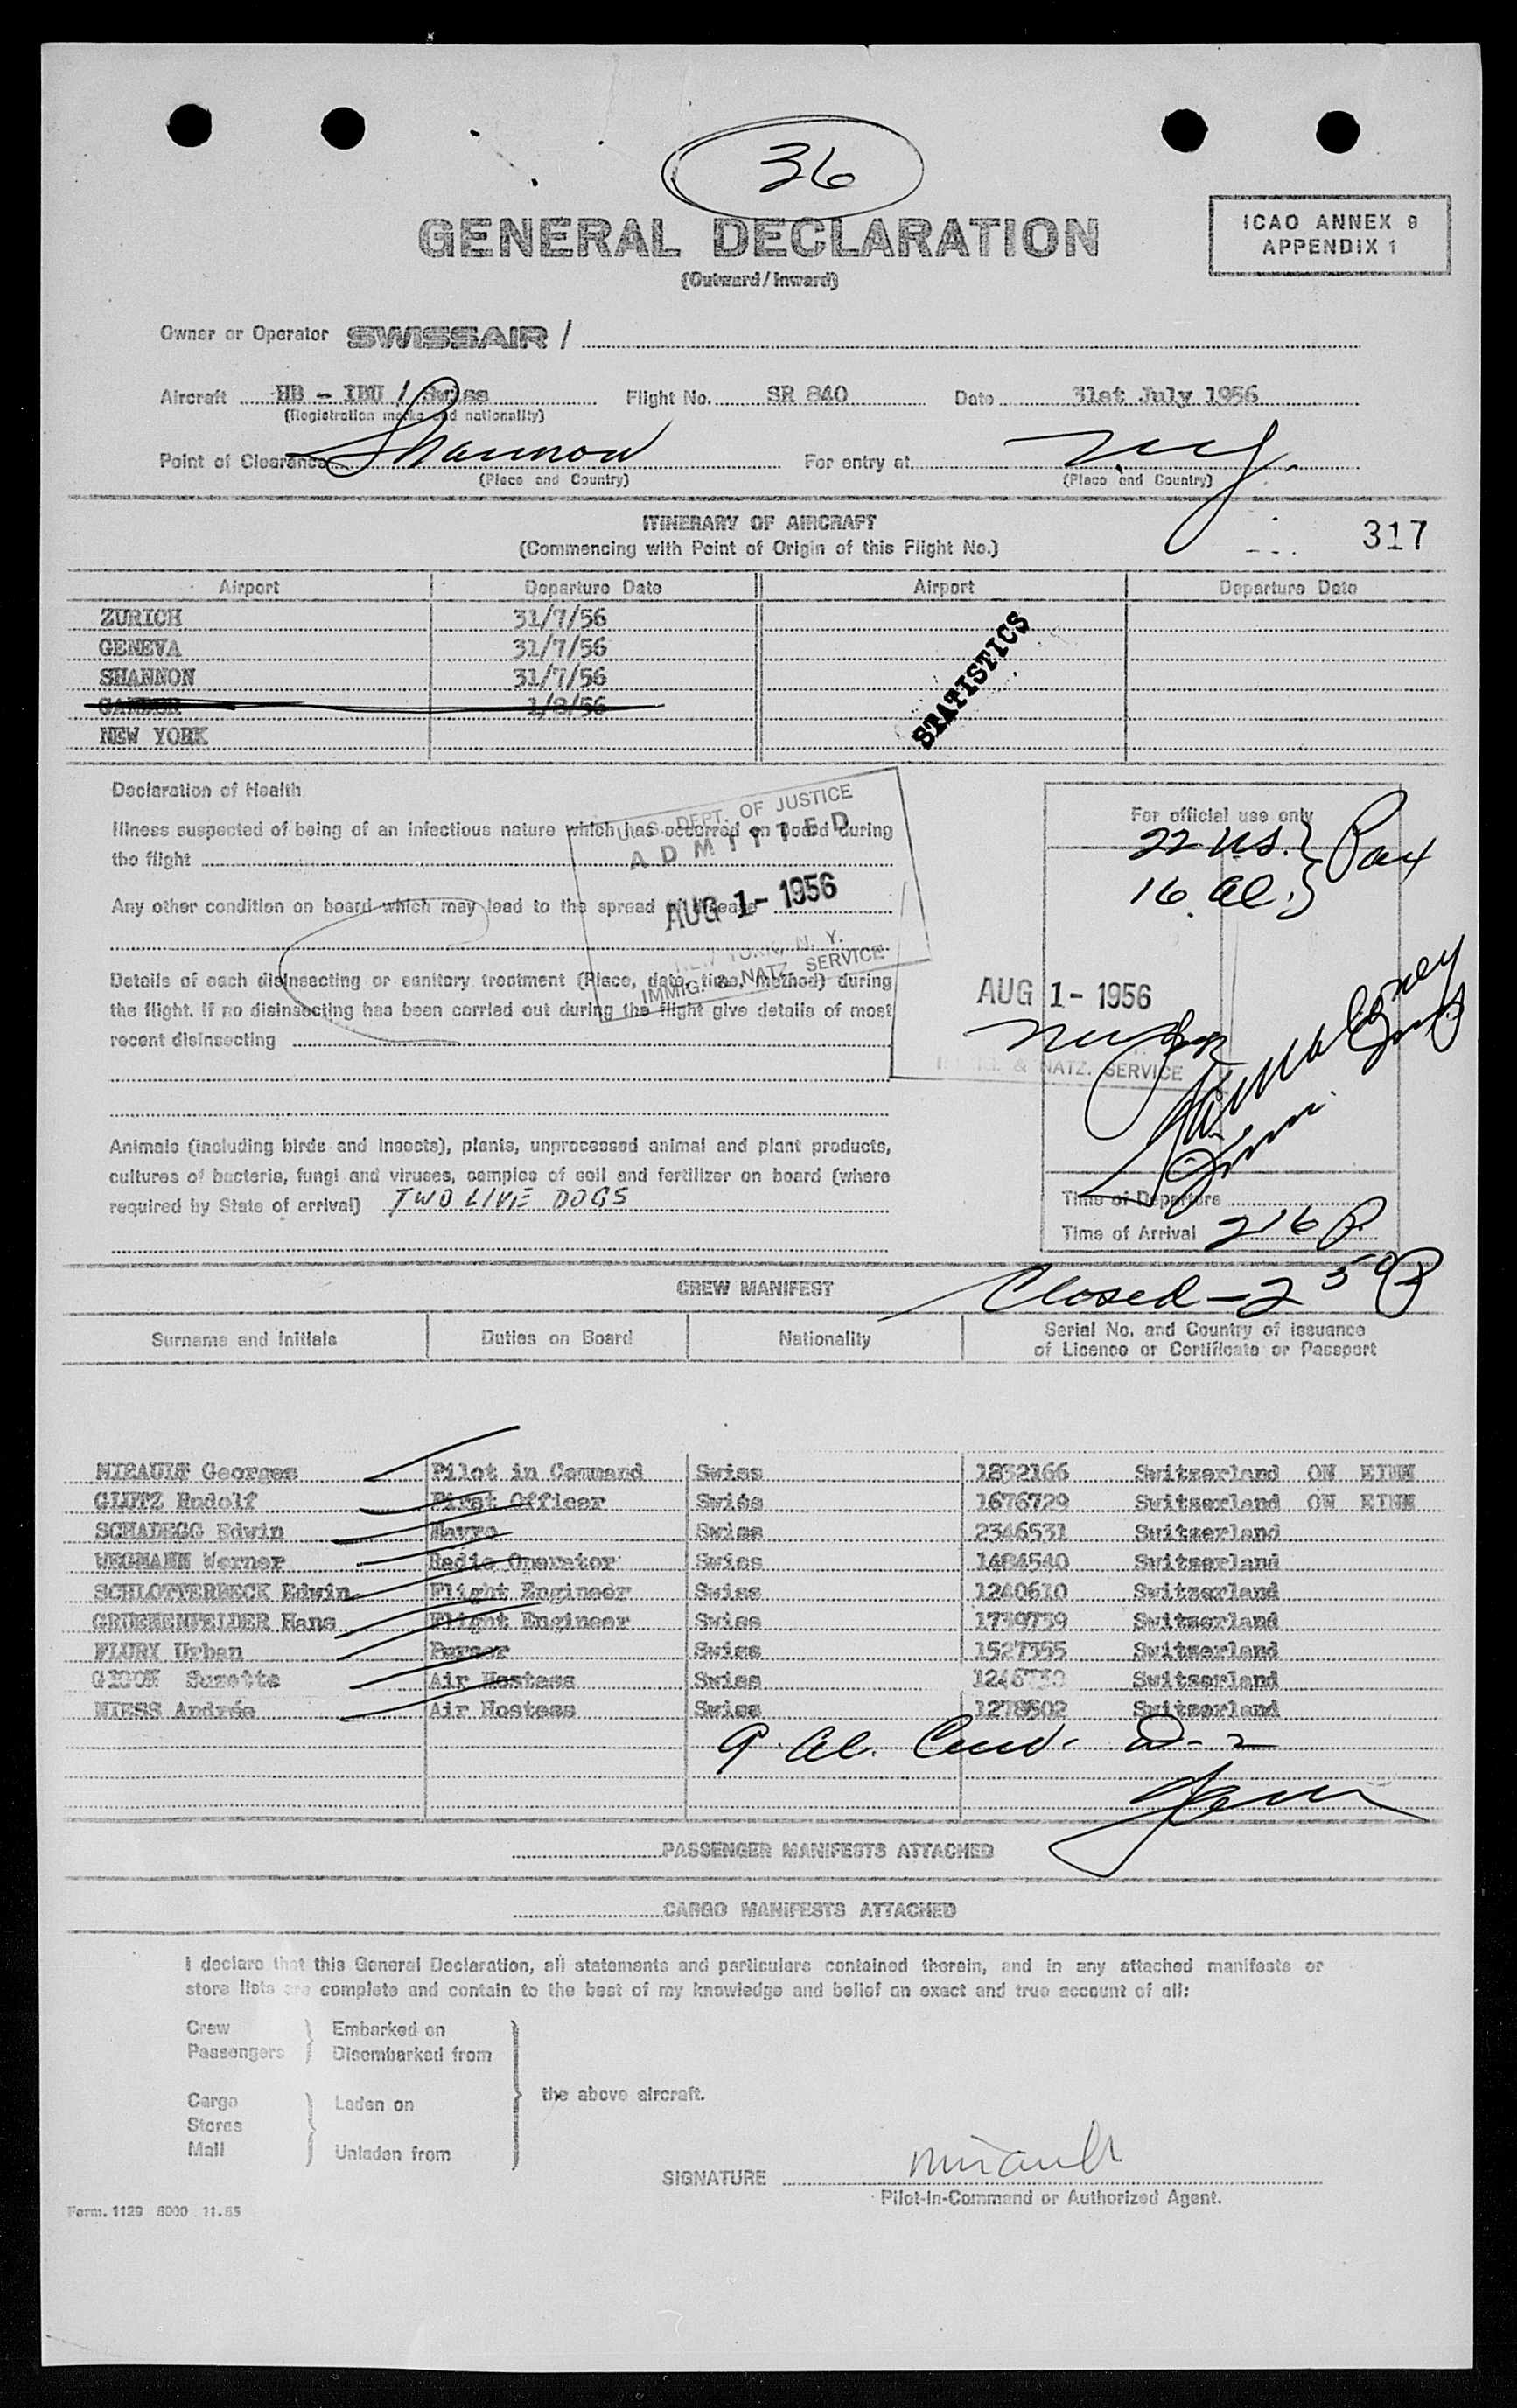 36
GENERAL DECLARATION
(Outward / Inward)
ICAO ANNEX 9
APPENDIX 1
Owner or Operator SWISSAIR /
Aircraft HB - IBU / Swiss Flight No. SR 840 Date 31st July 1956
(Registration marks and nationality)
Point of Clearance Shannon For entry at N.Y.
(Place and Country) (Place and Country)
ITINERARY OF AIRCRAFT
(Commencing with Point of Origin of this Flight No.)
317
Airport Departure Date Airport Departure Date
ZURICH 31/7/56
GENEVA 31/7/56
SHANNON 31/7/56
GANDER 1/8/56
NEW YORK
STATISTICS
Declaration of Health
Illness suspected of being of an infectious nature which has occurred on board during
the flight
Any other condition on board which may lead to the spread of disease
Details of each disinsecting or sanitary treatment (Place, date, time, method) during
the flight. If no disinsecting has been carried out during the flight give details of most
recent disinsecting
Animals (including birds and insects), plants, unprocessed animal and plant products,
cultures of bacteria, fungi and viruses, samples of soil and fertilizer on board (where
required by State of arrival) TWO LIVE DOGS
U. S. DEPT. OF JUSTICE
ADMITTED
AUG 1 - 1956
NEW YORK, N. Y.
IMMIG. & NATZ. SERVICE
For official use only
22 US. } Pax
16 al. }
AUG 1 - 1956
& NATZ. SERVICE
Time of Departure
Time of Arrival 216 P.
Closed - 2 59 P
CREW MANIFEST
Surname and Initials Duties on Board Nationality Serial No. and Country of issuance
of Licence or Certificate or Passport
MIRAULT Georges Pilot in Command Swiss 1832166 Switzerland ON EINN
GLUTZ Rudolf First Officer Swiss 1676729 Switzerland ON EINN
SCHADEGG Edwin Navro Swiss 2346531 Switzerland
WEGMANN Werner Radio Operator Swiss 1484540 Switzerland
SCHLOTTERBECK Edwin Flight Engineer Swiss 1240610 Switzerland
GRUENENFELDER Hans Flight Engineer Swiss 1739739 Switzerland
FLURY Urban Purser Swiss 1527355 Switzerland
Suzette Air Hostess Swiss Switzerland
NIESS Andrée Air Hostess Swiss 1278502 Switzerland
9. al. Crew. D-2
PASSENGER MANIFESTS ATTACHED
CARGO MANIFESTS ATTACHED
I declare that this General Declaration, all statements and particulars contained therein, and in any attached manifests or
store lists are complete and contain to the best of my knowledge and belief an exact and true account of all:
Crew Embarked on
Passengers Disembarked from
the above aircraft.
Cargo Laden on
Stores
Mail Unladen from
SIGNATURE Mirault
Pilot-in-Command or Authorized Agent.
Form. 1129 5000 11.55